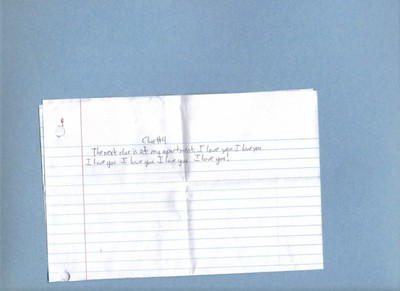 Clue #4
The next clue is at my apartment. I love you I love you
I love you I love you I love you I love you!